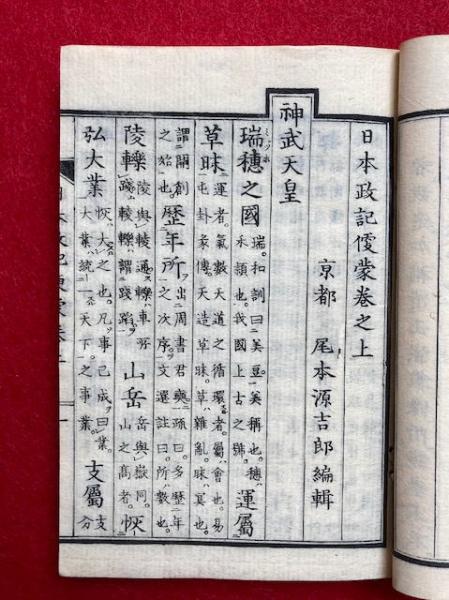 日本政記便蒙卷之上
京都 尾本源吉郎編輯
神武天皇
瑞穗之國 瑞。和訓曰美豆。美稱也。穗ハ禾穎也。我國上古之號。 運屬
草昧 運者。氣數天道之循環者。屬ハ會也。易屯卦彖傳。天造草昧。草ハ雜亂。昧ハ冥也。
謂開創之始也。 歷年所 出周書君奭。孫曰。多歷年之次序。文選註曰。所ハ數也。
陵轢 陵與轢通。轢ハ車所踐。陵轢ハ謂踐蹈。 山岳 岳與嶽同。山之高者。 恢
弘大業 恢ハ大之也。凡事已成曰業。大業ハ統一天下之事業。 支屬 支分